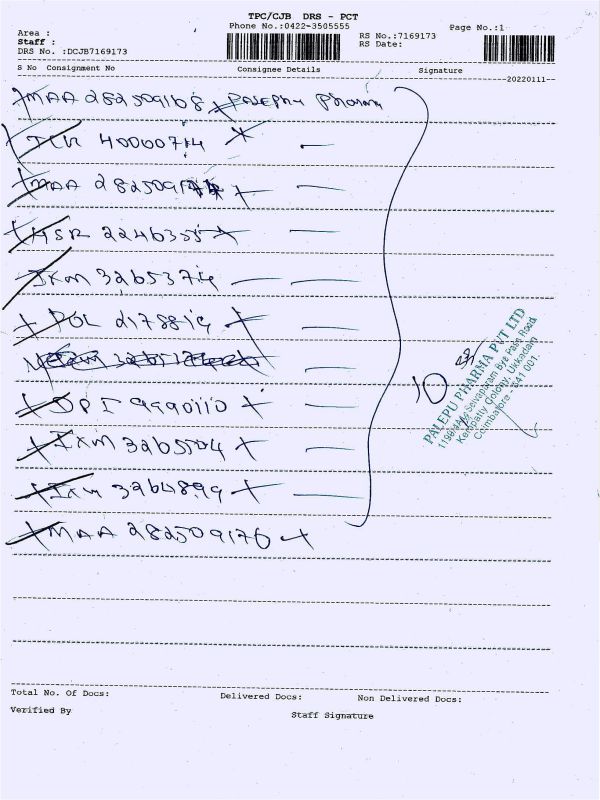 TPC/CJB DRS - PCT
Phone No.:0422-3505555
Page No.:1
Area :
Staff :
DRS No. :DCJB7169173
RS No.:7169173
RS Date:
S No Consignment No Consignee Details Signature
20220111
MAA 282509168 Palepu Pharma
40000714
MAA 2825091
HSR 2246355
IXM 3265374
POL 2178819
DPI 9990110
IXM 3265504
IXM 3264899
MAA 282509176
10
PALEPU PHARMA PVT LTD
Selvapuram Bye Pass Road
Colony, Ukkadam
Coimbatore - 641 001
Total No. Of Docs: Delivered Docs: Non Delivered Docs:
Verified By
Staff Signature